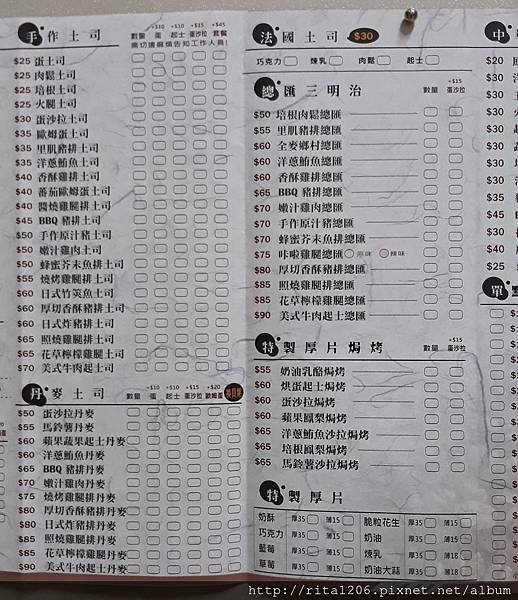 手作土司
數量 +$10 蛋 +$10 起士 +$15 蛋沙拉 +$45 套餐
需切邊麻煩告知工作人員!
$25 蛋土司
$25 肉鬆土司
$25 培根土司
$25 火腿土司
$30 蛋沙拉土司
$35 歐姆蛋土司
$35 里肌豬排土司
$35 洋蔥鮪魚土司
$40 香酥雞排土司
$40 蕃茄歐姆蛋土司
$40 醬燒雞腿排土司
$45 BBQ 豬排土司
$50 手作原汁豬土司
$50 嫩汁雞肉土司
$50 蜂蜜芥末魚排土司
$55 燒烤雞腿土司
$60 日式竹莢魚土司
$60 厚切香酥豬排土司
$60 日式炸豬土司
$65 照燒雞腿排土司
$65 花草檸檬雞腿土司
$70 美式牛肉起士土司
丹麥土司
數量 +$10 蛋 +$10 起士 +$15 蛋沙拉 +$20 歐姆蛋
$50 蛋沙拉丹麥
$55 馬鈴薯丹麥
$60 蘋果蔬果起士丹麥
$60 洋蔥鮪魚丹麥
$65 BBQ 豬排丹麥
$70 嫩汁雞肉丹麥
$75 燒烤雞腿排丹麥
$80 厚切香酥豬排丹麥
$80 日式炸豬丹麥
$85 照燒雞腿排丹麥
$85 花草檸檬雞腿丹麥
$90 美式牛肉起士丹麥
法國土司 $30
巧克力 煉乳 肉鬆 起士
總匯三明治
數量 +$15 蛋沙拉
$50 培根肉鬆總匯
$55 里肌豬排總匯
$60 全麥鄉村總匯
$60 洋蔥鮪魚總匯
$60 香酥雞排總匯
$65 BBQ 豬排總匯
$70 嫩汁雞肉總匯
$70 手作原汁豬總匯
$70 蜂蜜芥末魚排總匯
$75 咔啦雞腿總匯 原味 辣味
$80 厚切香酥豬排總匯
$85 照燒雞腿排總匯
$85 花草檸檬雞腿總匯
$90 美式牛肉起士總匯
特製厚片焗烤
數量 +$15 蛋沙拉
$55 奶油乳酪焗烤
$60 烘蛋起士焗烤
$60 蛋沙拉焗烤
$60 蘋果鳳梨焗烤
$65 洋蔥鮪魚沙拉焗烤
$65 培根鳳梨焗烤
$65 馬鈴薯沙拉焗烤
特製厚片
奶酥 厚35 薄15 脆粒花生 厚35 薄15
巧克力 厚35 薄15 奶油 厚35 薄15
藍莓 厚35 薄15 煉乳 厚35 薄18
草莓 厚35 薄15 奶油大蒜 厚35 薄18
中
$20
$30
$30
$30
單
http://rita1206.pixnet.net/album